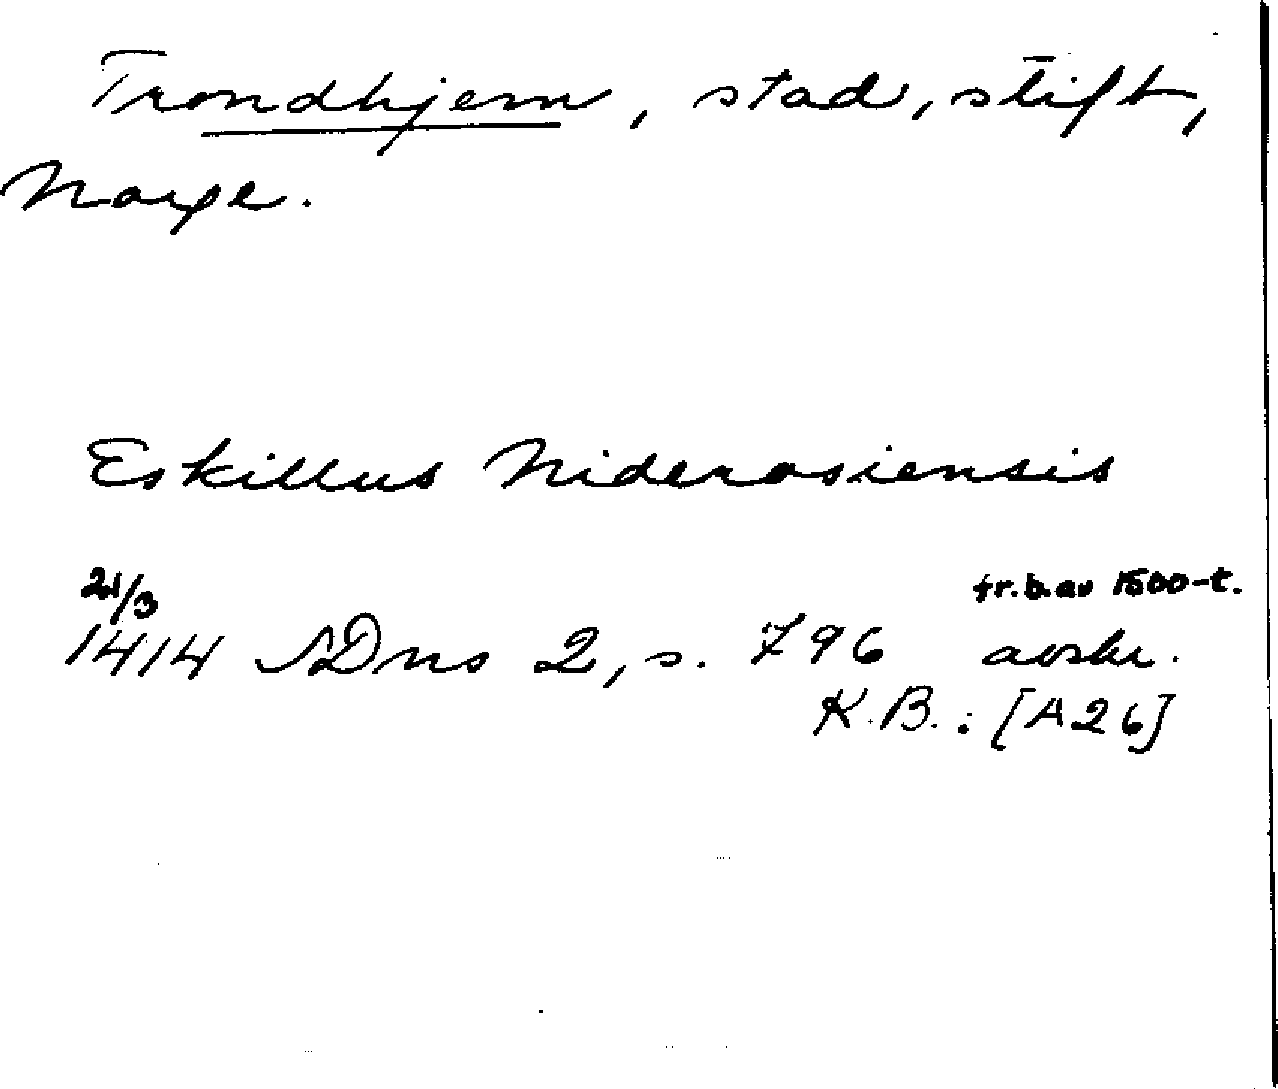 Trondhjem, stad, stift,
Norge.
Eskillus Niderosiensis
21/3 fr.b.av 1500-t.
1414 SDns 2, s. 796 avskr.
K.B.: [A26]